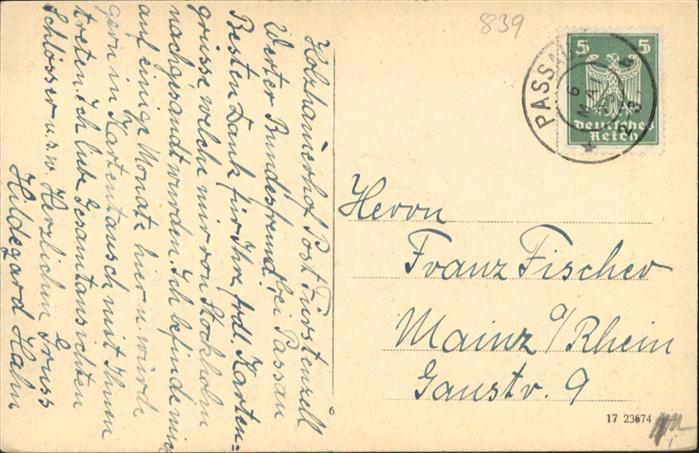 Holzhauerhof Post Fürstenzell
bei Passau
Werter Bundesfreund!
Besten Dank für Ihre frdl. Karten=
grüsse welche mir von Stockholm
nachgesandt wurden. Ich befinde mich
auf einige Monate hier u. würde
gern in Kartentausch mit Ihnen
treten. Ich liebe Gesamtansichten
Schlösser u.s.w. Herzlichen Gruss
Hildegard Hahn
839
PASSAU
6
MAI
5 5
Deutsches
Reich
Herrn
Franz Fischer
Mainz a/Rhein
Gaustr. 9
6
17 23674